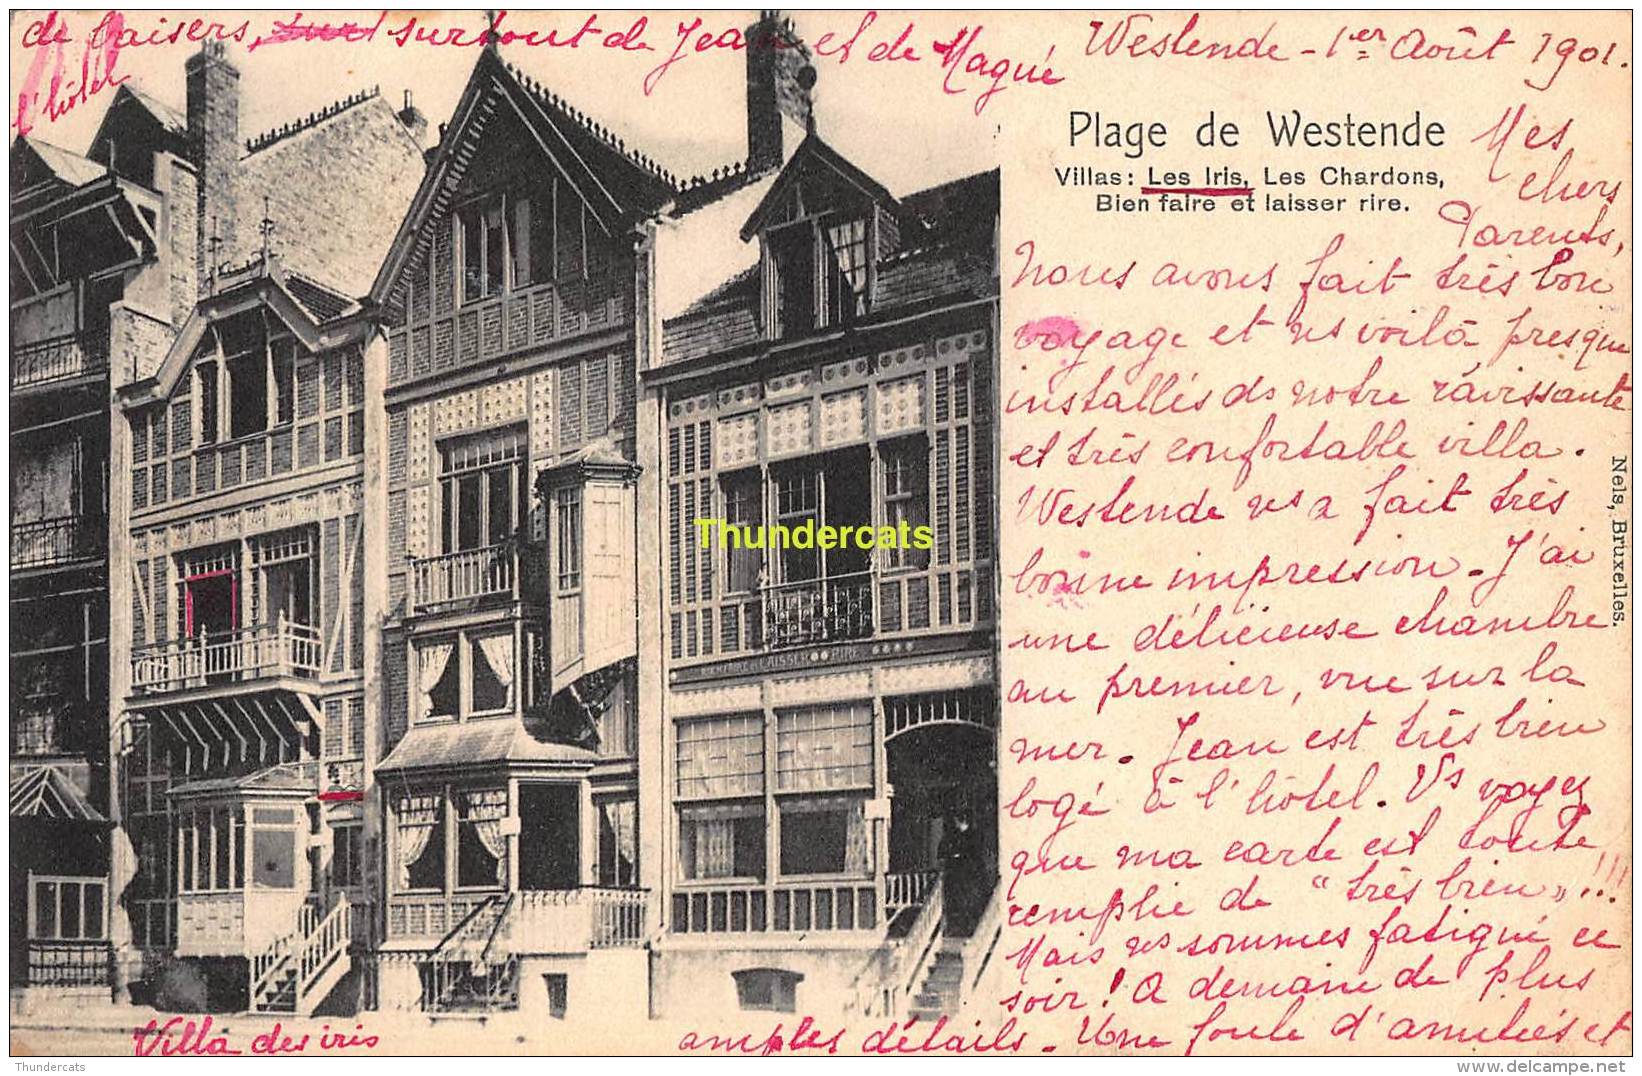 Westende - 1er Août 1901.
Plage de Westende
Villas: Les Iris, Les Chardons,
Bien faire et laisser rire.
Mes
chers
Parents,
Nous avons fait très bon
voyage et ns voilà presque
installés ds notre ravissante
et très confortable villa.
Westende ns a fait très
bonne impression. J'ai
une délicieuse chambre
au premier, vue sur la
mer. Jean est très bien
logé à l'hôtel. Vs voyez
que ma carte est toute
remplie de "très bien"!!!
Mais ns sommes fatigué ce
soir! A demain de plus
amples détails. Une foule d'amitiés et
de baisers, surtout de Jean et de Magué
l'hôtel
Villa des iris
BIEN FAIRE ET LAISSER RIRE
Nels, Bruxelles.
Thundercats
Thundercats
delcampe.net